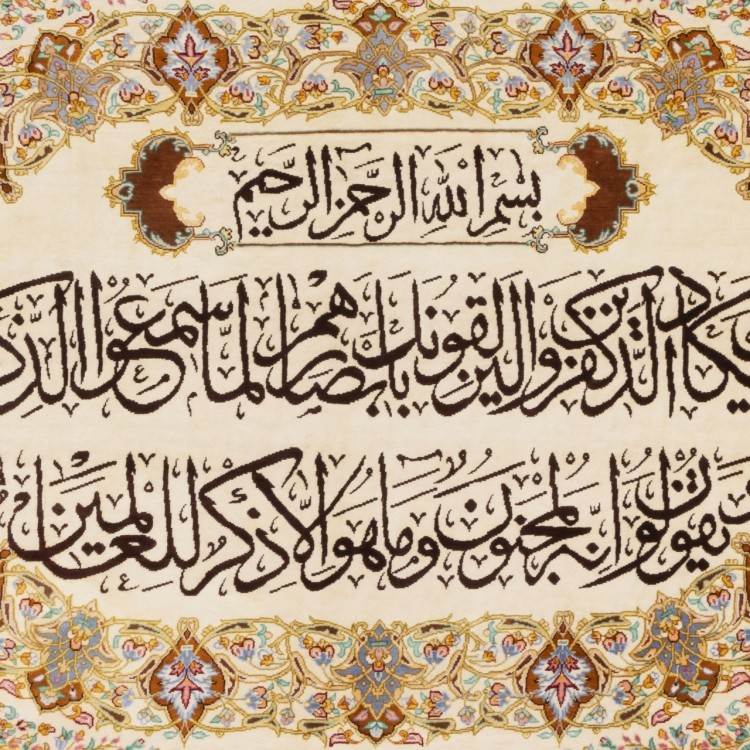 بسم الله الرحمن الرحيم
يكاد الذين كفروا ليزلقونك بأبصارهم لما سمعوا الذكر
ويقولون إنه لمجنون وما هو إلا ذكر للعالمين